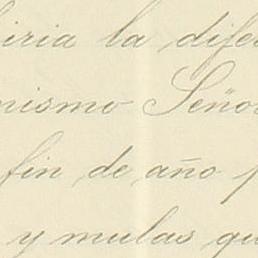 iria la dife
mismo Señor
fin de año p
y mulas qu